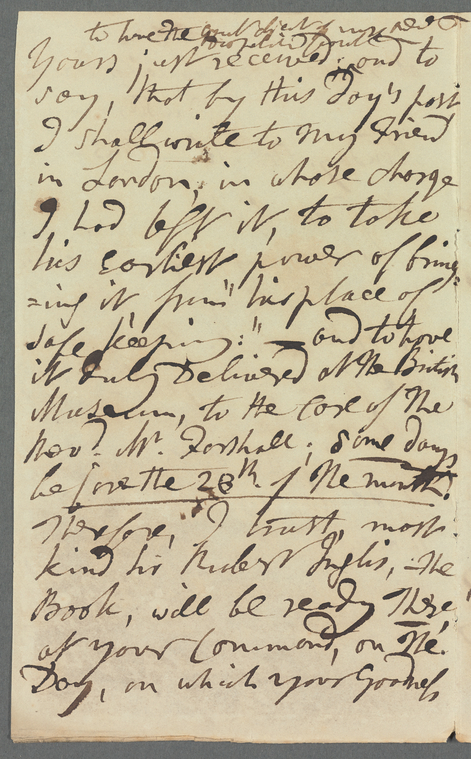 to have the
Yours just received: and to
say, that by this Day's post
I shall write to my Friend
in London, in whose charge
I had left it, to take
his earliest power of bring=
=ing it, from "his place of
safe keeping:" — and to have
it duly Delivered at the British
Museum, to the Care of the
Revd. Mr. Forshall; some days
before the 28th of the month.
Therefore, I trust, most
kind Sir Robert Inglis, the
Book, will be ready There,
at your Command, on the
Day, on which your Goodness